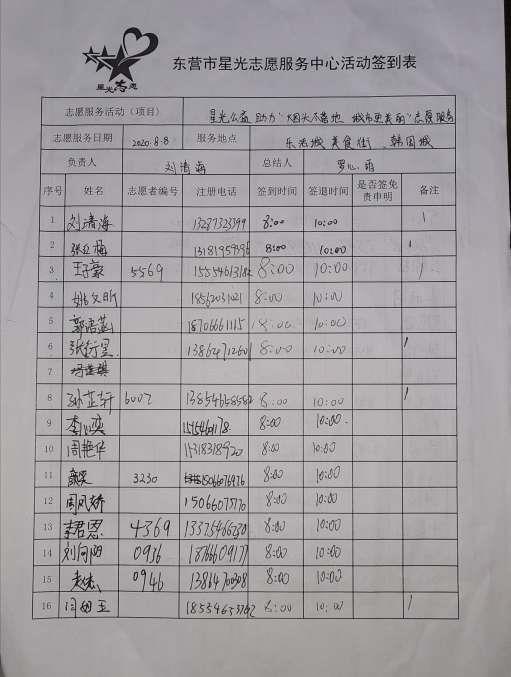 星光志愿
东营市星光志愿服务中心活动签到表
志愿服务活动（项目） 星光公益 助力“烟头不落地 城市更美丽”志愿服务
志愿服务日期 2020.8.8 服务地点 乐活城美食街、韩国城
负责人 刘清海 总结人 罗心雨
序号 姓名 志愿者编号 注册电话 签到时间 签退时间 是否签免责申明 备注
1 刘清海 13287323399 8:00 10:00 1
2 张立梅 8:00 10:00 1
3 王子豪 5569 8:00 10:00 1
4 18562031021 8:00 10:00
5 18706661115 8:00 10:00
6 8:00 10:00 1
7
8 孙芷轩 6002 13854658582 8:00 10:00 1
9 8:00 10:00
10 周艳华 8:00 10:00
11 3230 15066076976 8:00 10:00
12 周凤娇 15066075770 8:00 10:00
13 李君恩 4369 13375466230 8:00 10:00
14 刘向阳 0936 18766609177 8:00 10:00
15 0946 13864700308 8:00 10:00
16 8:00 10:00 1